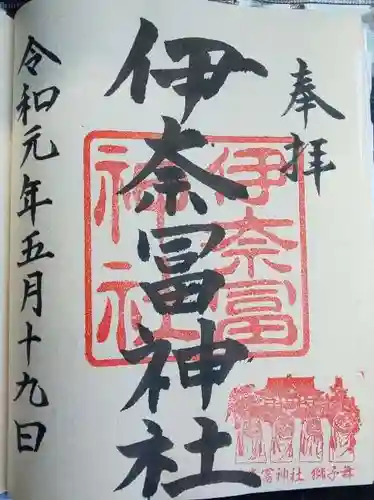 奉拝
伊奈冨神社
伊奈冨
神社
冨神社 獅子舞
令和元年五月十九日